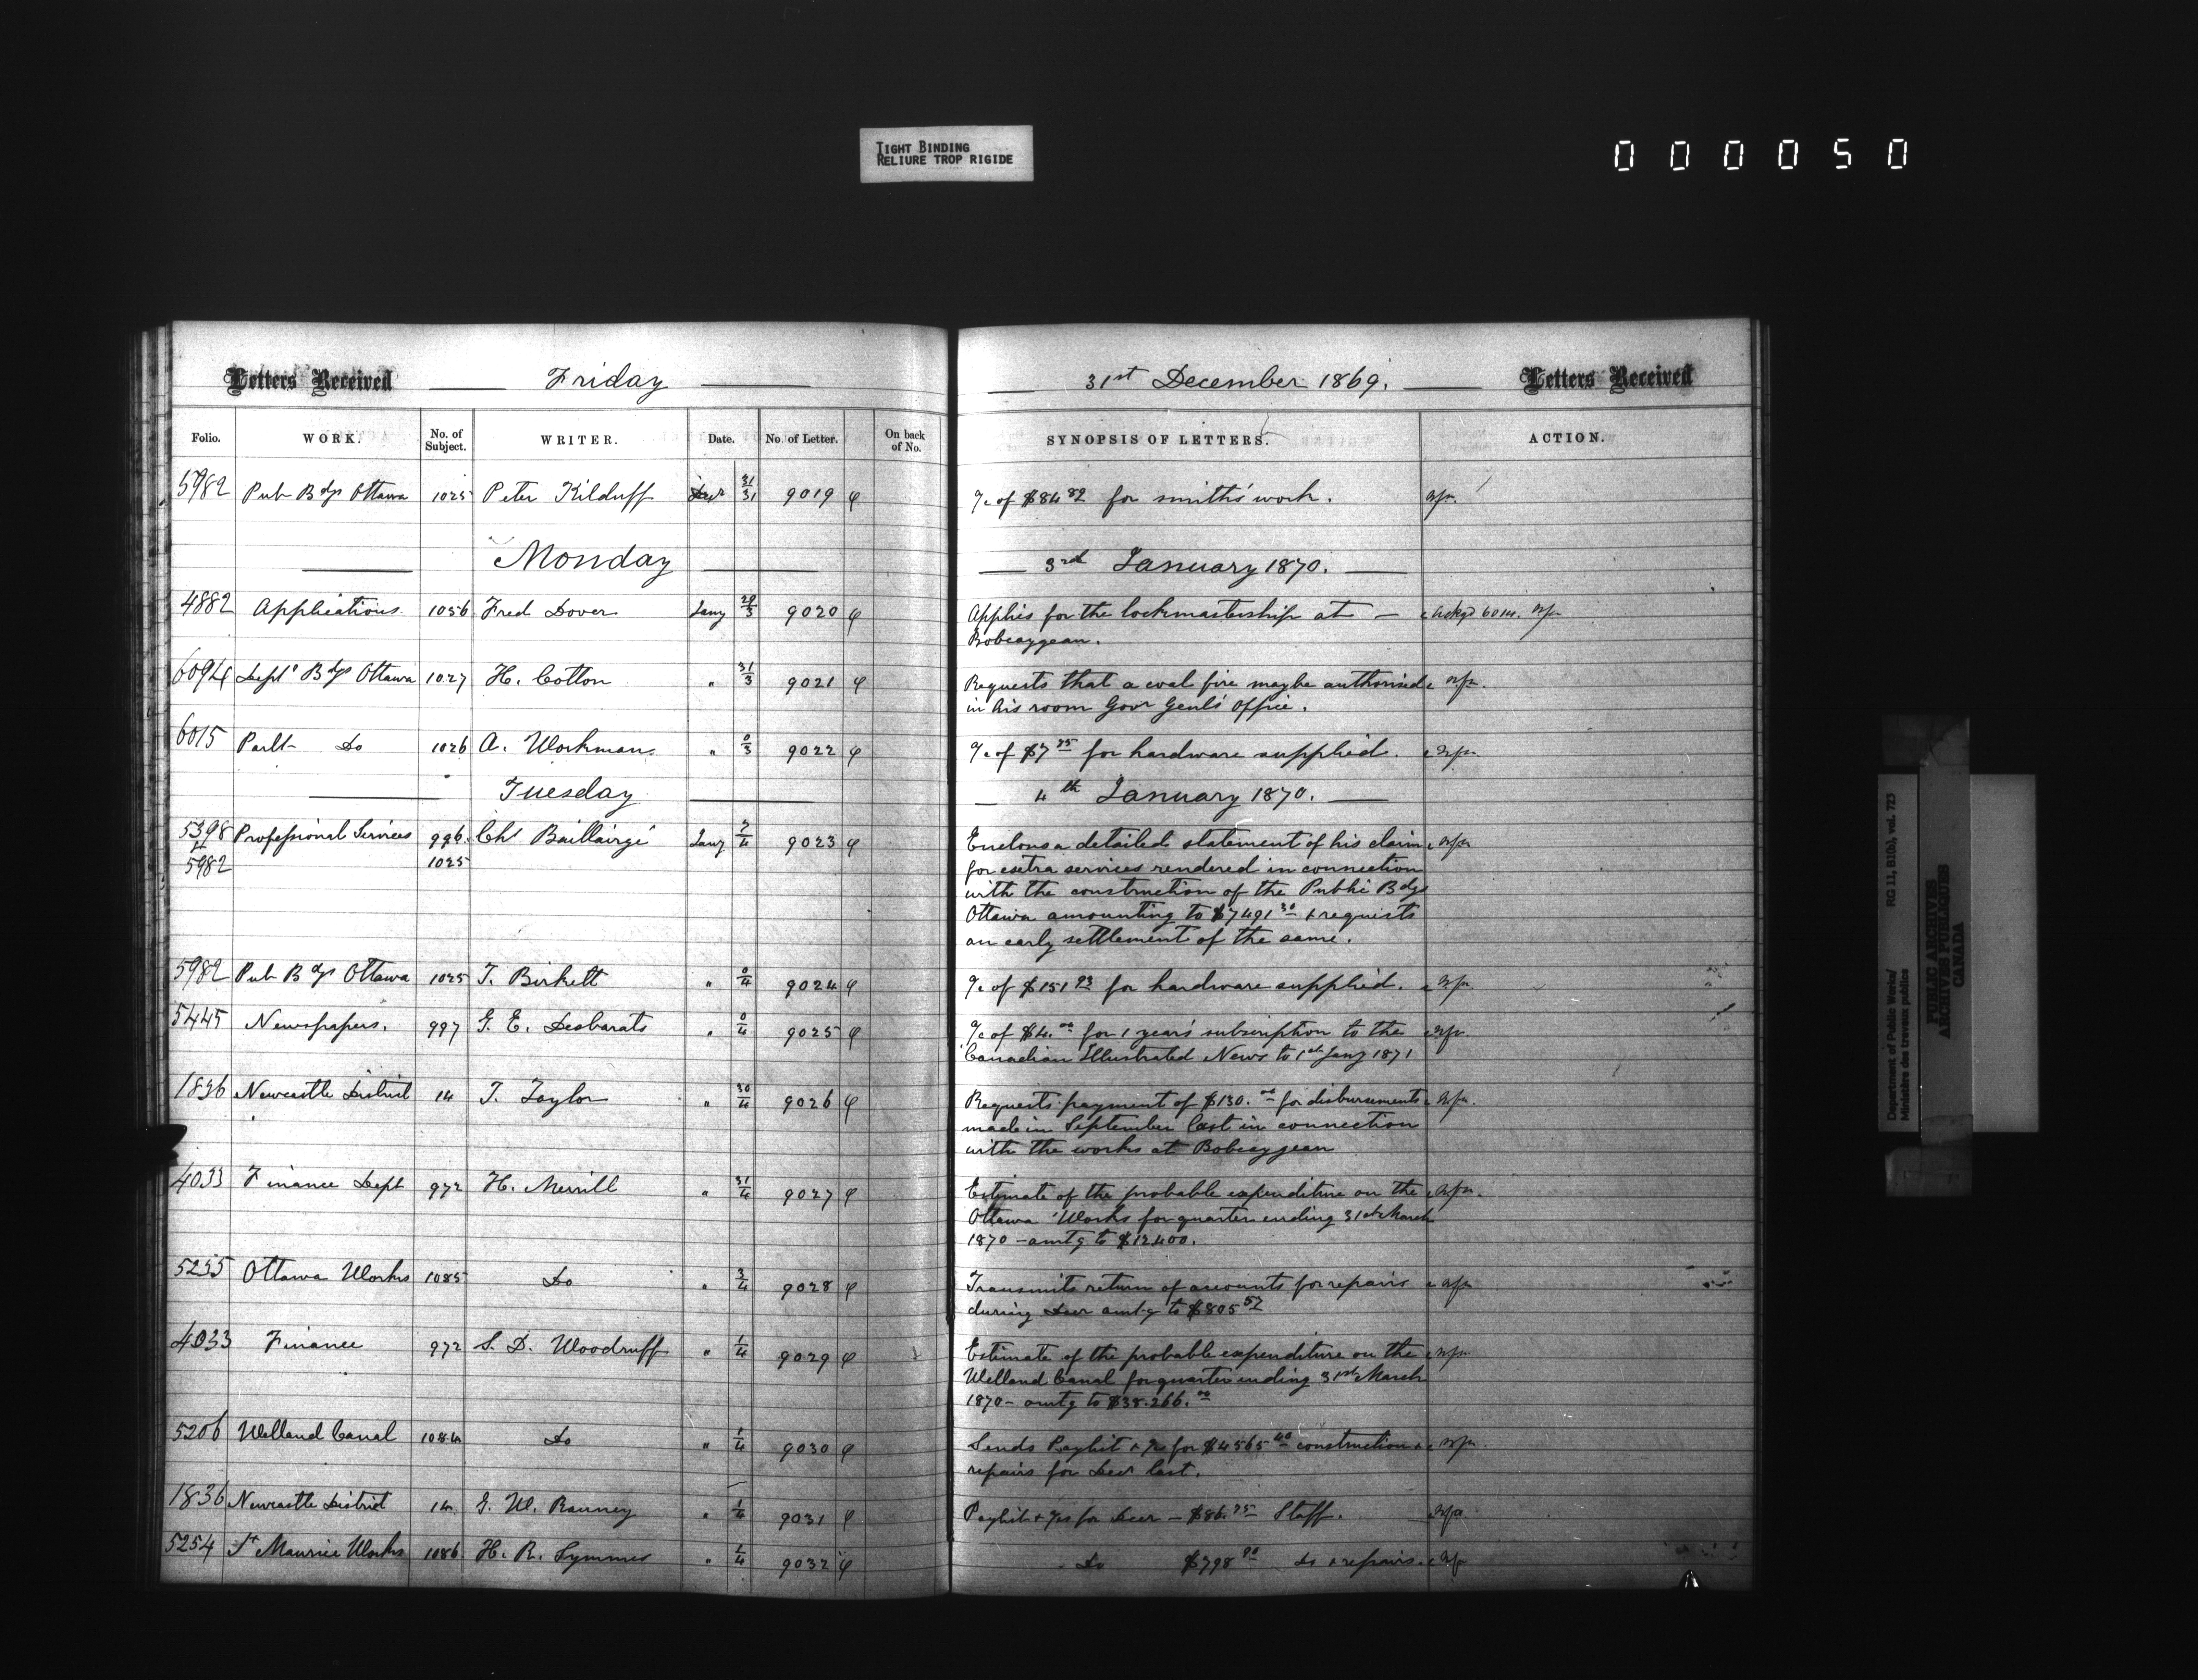 TIGHT BINDING
RELIURE TROP RIGIDE
000050
Letters Received Friday 31st December 1869. Letters Received
Folio. WORK. No. of Subject. WRITER. Date. No. of Letter. On back of No. SYNOPSIS OF LETTERS. ACTION.
5982 Pub Bdgs Ottawa 1025 Peter Kilduff Decr 31/31 9019 a/c of $84 82 for smith's work.
Monday 3rd January 1870.
4882 Applications 1056 Fred Dover Jany 29/3 9020 Applies for the lockmastership at — Ackgd 6014.
Bobcaygean.
6094 Deptl Bdgs Ottawa 1027 H. Cotton " 31/3 9021 Requests that a coal fire may be authorised
in his room Govr Genl's Office.
6015 Parlt Do 1026 A. Workman " 0/3 9022 a/c of $7 75 for hardware supplied.
Tuesday 4th January 1870.
5398 Professional Services 996 Chs Baillairgé Jany 2/4 9023 Encloses a detailed statement of his claim
5982 1025 for extra services rendered in connection
with the construction of the Public Bdgs
Ottawa amounting to $7491 30 & requests
an early settlement of the same.
5982 Pub Bdgs Ottawa 1025 T. Birkett " 0/4 9024 a/c of $151 93 for hardware supplied.
5445 Newspapers. 997 G. E. Desbarats " 0/4 9025 a/c of $4. 00 for 1 year's subscription to the
Canadian Illustrated News to 1st Jany 1871
1836 Newcastle District 14 T. Taylor " 30/4 9026 Requests payment of $130. 00 for disbursements
made in September last in connection
with the works at Bobcaygean
4033 Finance Dept 972 H. Merrill " 31/4 9027 Estimate of the probable expenditure on the
Ottawa Works for quarter ending 31st March
1870 - amtg to $12.400.
5235 Ottawa Works 1085 Do " 3/4 9028 Transmits return of accounts for repairs
during Decr amtg to $805 52
4033 Finance 972 S. D. Woodruff " 1/4 9029 Estimate of the probable expenditure on the
Welland Canal for quarter ending 31st March
1870 - amtg to $38.266. 00
5206 Welland Canal 1084 Do " 1/4 9030 Sends Paylist & a/cs for $4565 40 construction &
repairs for Decr last.
1836 Newcastle District 14 G. W. Ranney " 1/4 9031 Paylist & a/cs for Decr - $86. 75 Staff.
5254 St Maurice Works 1086 H. R. Symmes " 1/4 9032 Do $798 90 do & repairs.
Department of Public Works/ RG 11, B1(b), vol. 723
Ministère des travaux publics
PUBLIC ARCHIVES
ARCHIVES PUBLIQUES
CANADA